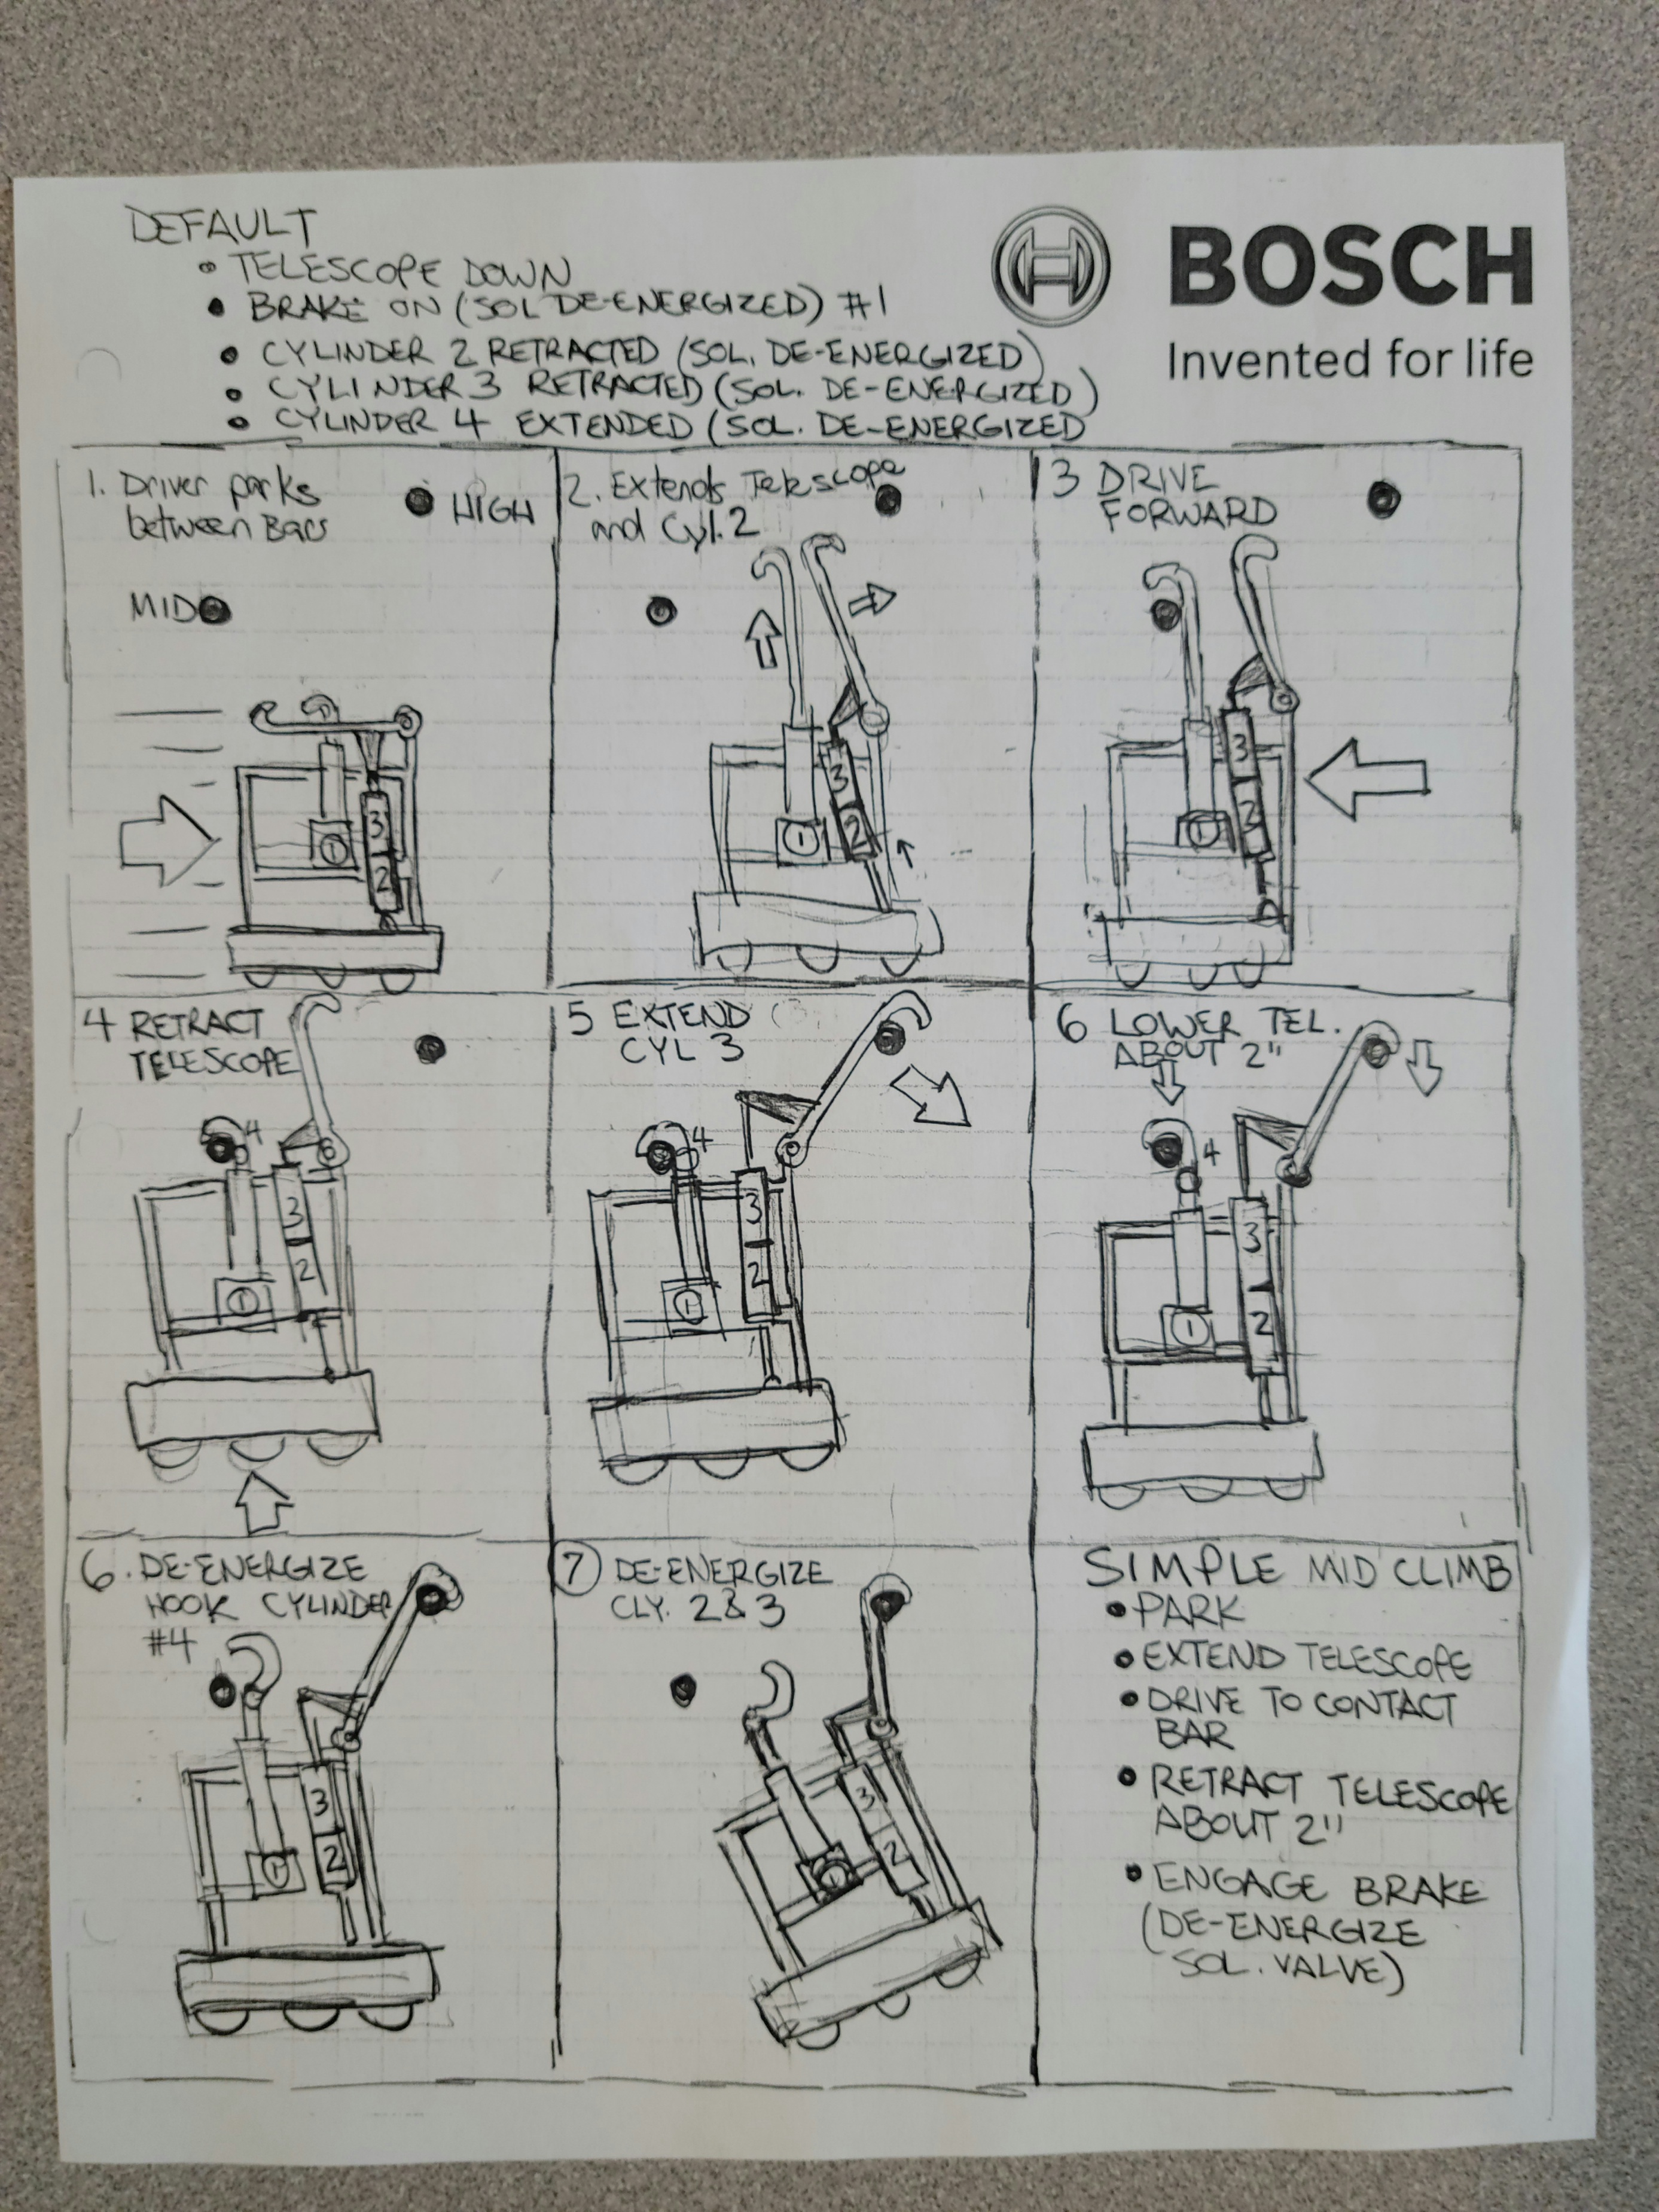 DEFAULT
• TELESCOPE DOWN
• BRAKE ON (SOL DE-ENERGIZED) #1
• CYLINDER 2 RETRACTED (SOL. DE-ENERGIZED)
• CYLINDER 3 RETRACTED (SOL. DE-ENERGIZED)
• CYLINDER 4 EXTENDED (SOL. DE-ENERGIZED
BOSCH
Invented for life
1. Driver parks
between Bars
HIGH
MID
3
2
1
2. Extends Telescope
and Cyl. 2
3
2
1
3 DRIVE
FORWARD
3
2
1
4 RETRACT
TELESCOPE
4
3
2
1
5 EXTEND
CYL 3
4
3
2
1
6 LOWER TEL.
ABOUT 2"
4
3
2
1
6. DE-ENERGIZE
HOOK CYLINDER
#4
3
2
1
7 DE-ENERGIZE
CLY. 2 & 3
3
2
1
SIMPLE MID CLIMB
• PARK
• EXTEND TELESCOPE
• DRIVE TO CONTACT
BAR
• RETRACT TELESCOPE
ABOUT 2"
• ENGAGE BRAKE
(DE-ENERGIZE
SOL. VALVE)